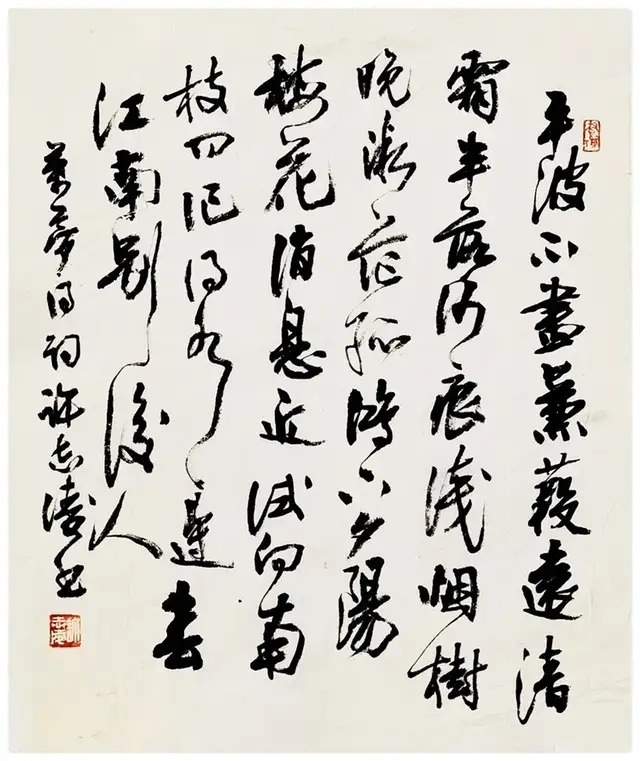 平波不盡蒹葭遠清
霜半落沙痕淺烟樹
晚微茫孤鴻下夕陽
梅花消息近試向南
枝問記得水邊春
江南別後人
葉夢得詞許志書